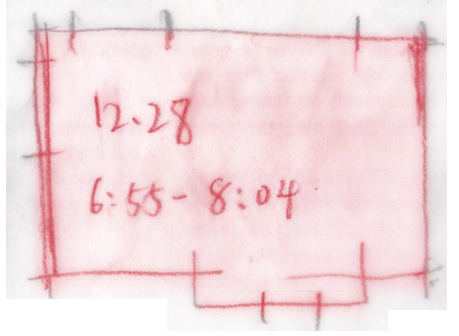 12.28
6:55-8:04